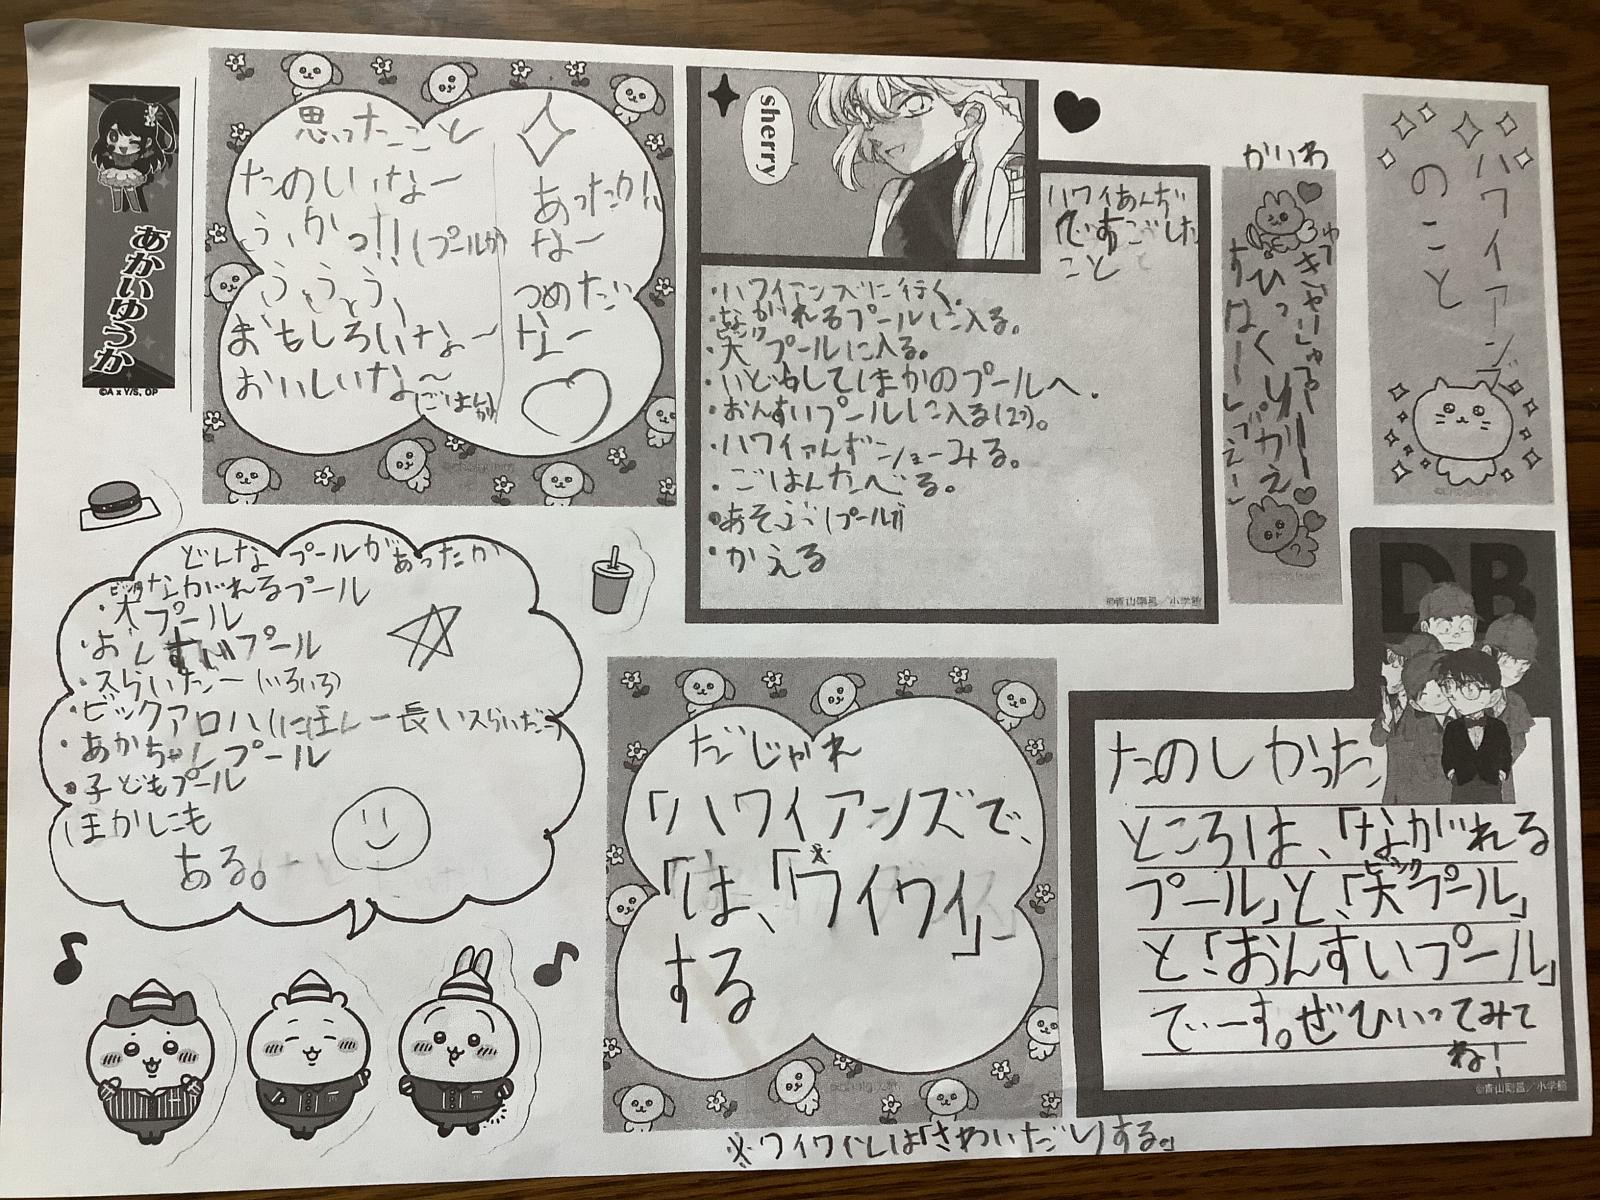 ハワイアンズ
のこと
かいわ
sherry
ハワイあんず
ですごした
こと
・ハワイアンズに行く。
・ながれるプールに入る。
・大プールに入る。
・いどうしてほかのプールへ.
・おんすいプールに入る(2つ)。
・ハワイアんずショーみる。
・ごはんたべる。
・あそぶ(プールが
・かえる
思ったこと
たのしいなー
うかっ!!(プールが
おもしろいなー
おいしいな〜
(ごはんが)
あったかい
なー
つめたい
なー
あかいゆうか
©A x Y/S, OP
どんなプールがあったか
・ながれるプール
ビック
・大プール
・おんすいプール
・スらいだー(いろいろ)
・ビックアロハ(にほん一長いスらいだー)
・あかちゃんプール
・子どもプール
ほかにも
ある。
だじゃれ
「ハワイアンズで、
「は、「ワイワイ」
する
※ワイワイとは「さわいだりする。」
©青山剛昌/小学館
DB
たのしかった
ところは、「ながれる
ビック
プール」と、「大プール」
と「おんすいプール」
でーす。ぜひいってみて
ね!
©青山剛昌/小学館